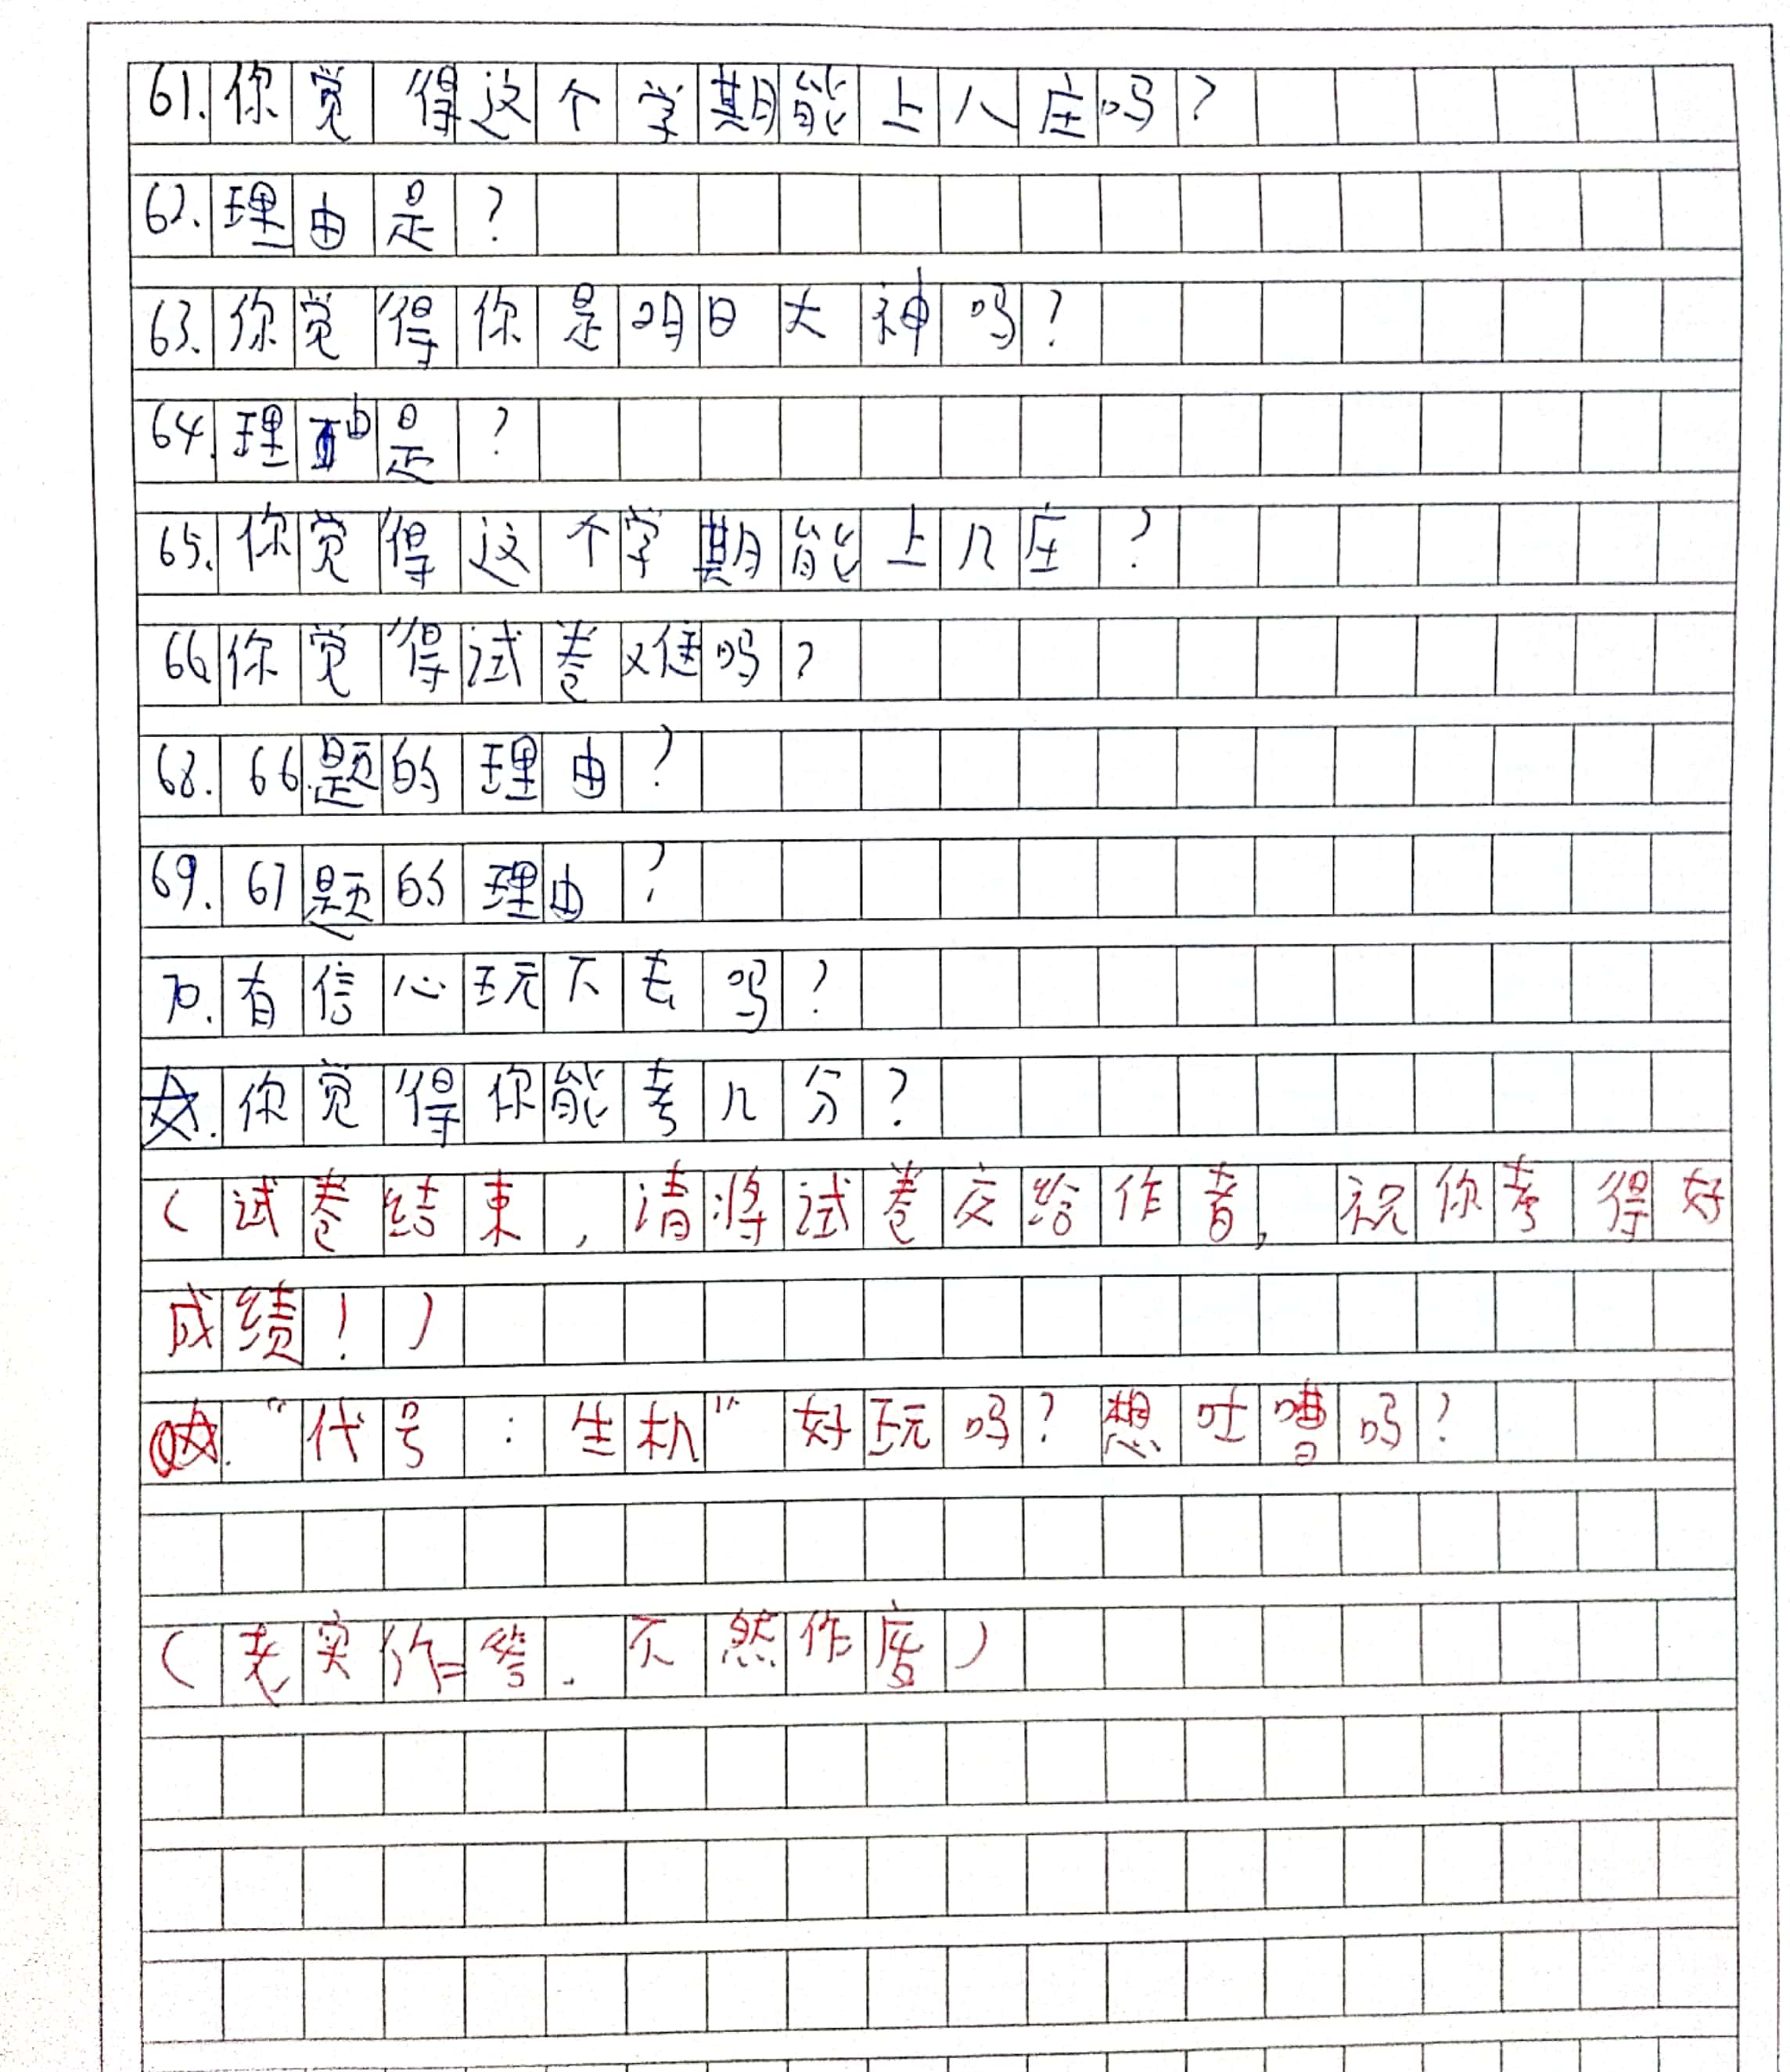 61.你觉得这个学期能上八庄吗?
62.理由是?
63.你觉得你是明日大神吗?
64.理由是?
65.你觉得这个学期能上几庄?
66.你觉得试卷难吗?
68.66.题的理由?
69.67题的理由?
70.有信心玩下去吗?
☆.你觉得你能考几分?
(试卷结束,请将试卷交给作者,祝你考得好
成绩!)
☆.“代号:生机”好玩吗?想吐嘈吗?
(老实作答.不然作废)